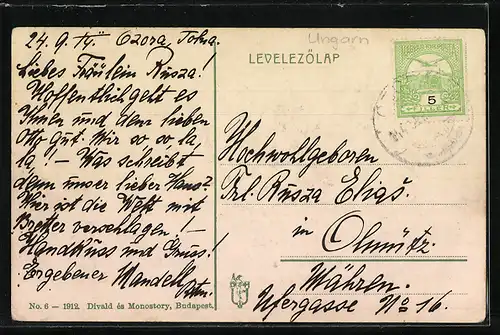 24. 9. Ozora, Tolna.
Liebes Fräulein Rusza!
Hoffentlich geht es
Ihnen und dem lieben
Otto gut. Wir so so, la
la! – Was schreibt
denn unser lieber Hans?
Hier ist die Welt mit
Bretter verschlagen! –
Handkuss und Gruss!
Ergebener Mandell
No. 6 – 1912. Divald és Monostory, Budapest.
Ungarn
LEVELEZŐLAP
5
Hochwohlgeboren
Frl. Rusza Eliaš
in Olmütz
Mähren.
Ufergasse No 16.